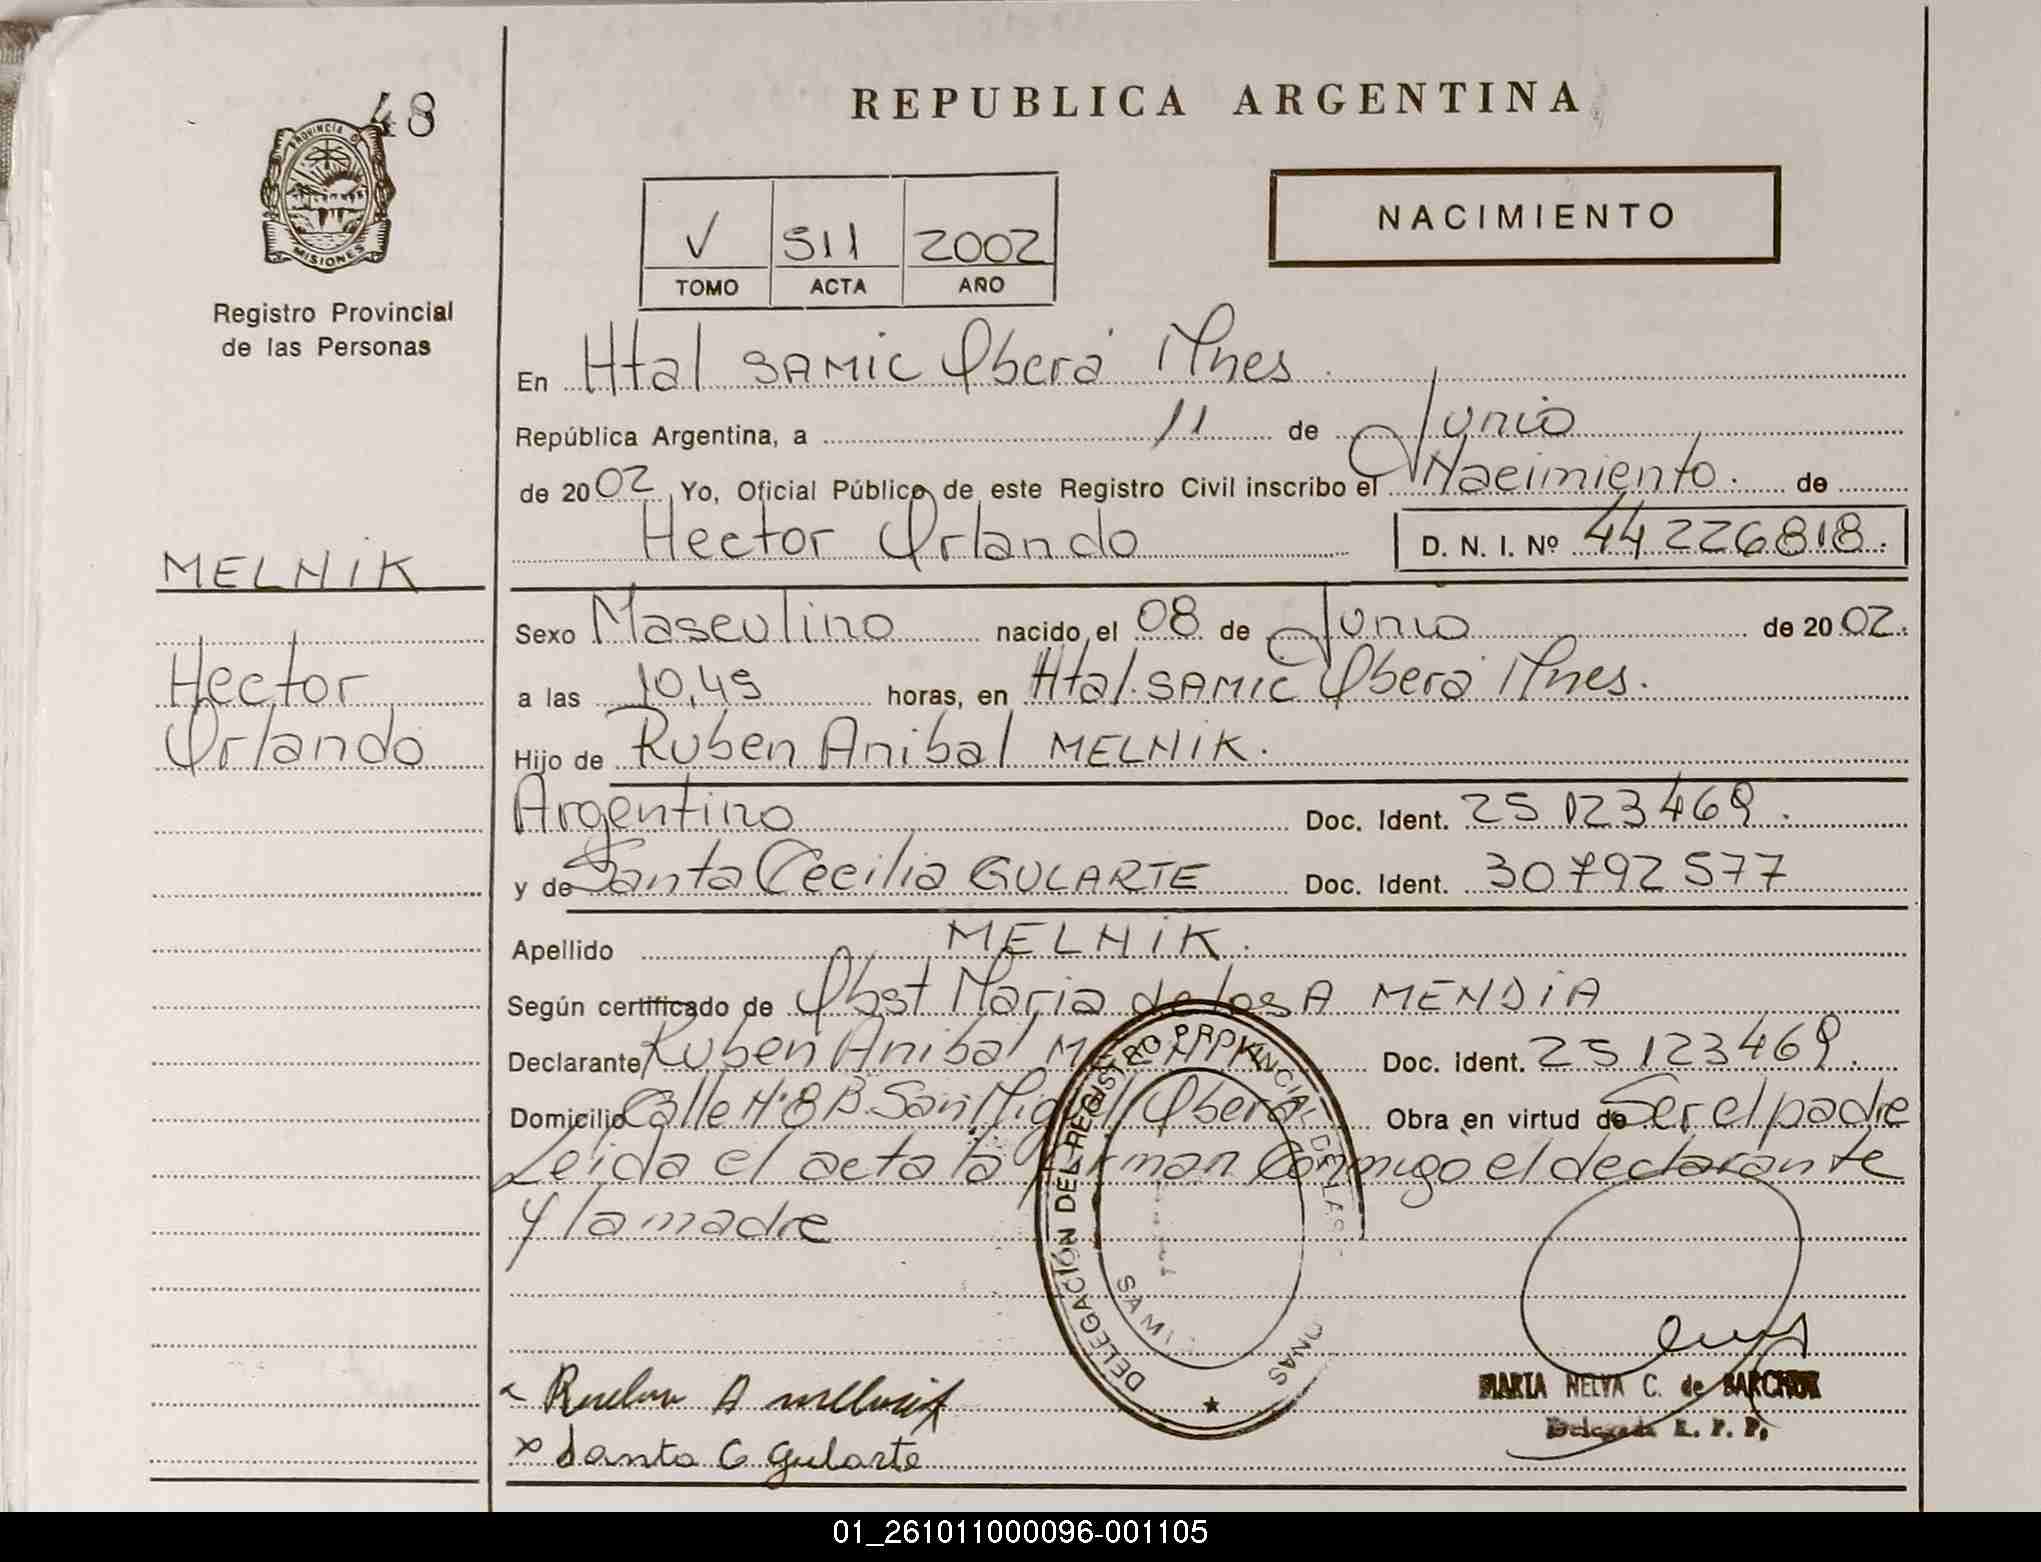 48
PROVINCIA DE
MISIONES
Registro Provincial
de las Personas
MELNIK
Hector
Orlando
REPUBLICA ARGENTINA
V 511 2002
TOMO ACTA AÑO
NACIMIENTO
En Htal SAMIC Oberá Mnes.
República Argentina, a 11 de Junio
de 2002 Yo, Oficial Público de este Registro Civil inscribo el Nacimiento. de
Hector Orlando D. N. I. Nº 44226818.
Sexo Masculino nacido el 08 de Junio de 2002.
a las 10,45 horas, en Htal. SAMIC Oberá Mnes.
Hijo de Ruben Anibal MELNIK.
Argentino Doc. Ident. 25 123 469.
y de Santa Cecilia GULARTE Doc. Ident. 30792577
Apellido MELNIK.
Según certificado de Obst Maria de los A MENDIA
Declarante Ruben Anibal Doc. Ident. 25 123 469.
Domicilio Calle Nº 8 B. San Miguel Oberá Obra en virtud de Ser el padre
Leida el acta la firman conmigo el declarante
y la madre
DELEGACIÓN DEL REGISTRO PROVINCIAL DE LAS
SAMI
Ruben A melnik
x Santa C Gularte
MARIA NELVA C. de
Delegada R. P. P.
01_261011000096-001105